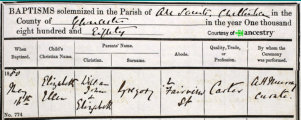 BAPTISMS solemnized in the Parish of All Saints, Cheltenham
in the County of Gloucester in the Year One thousand
eight hundred and Eighty
Courtesy of ancestry
When Baptized. Child's Christian Name. Parents' Name. Christian. Surname. Abode. Quality, Trade, or Profession. By whom the Ceremony was performed.
1880
May 16th
No. 774
Elizabeth Ellen
William John & Elizabeth
Gregory
Fairview St
Carter
Curate